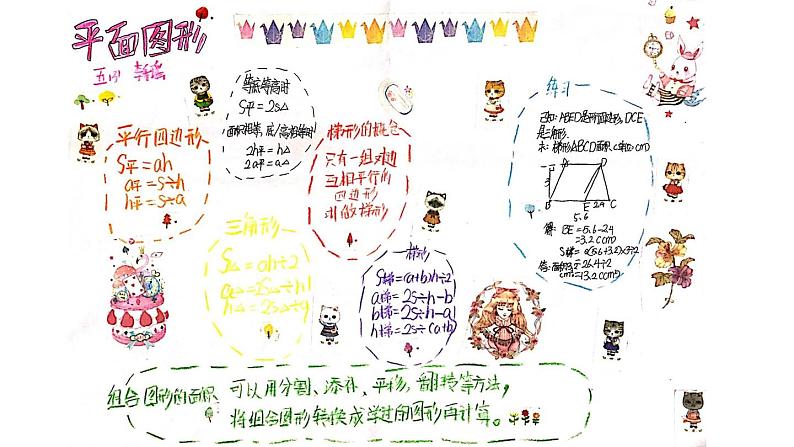 平面图形
五
等底等高时
S平=2S△
面积相等,底/高相等时
2h平=h△
2a平=a△
平行四边形
S平=ah
a平=S÷h
h平=S÷a
梯形的概念
只有一组对边
互相平行的
四边形
叫做梯形
练习一
已知:ABED是平行四边形,DCE
是三角形.
求:梯形ABCD面积
A D
3
B E 2.4 C
5.6
BE=5.6-2.4
=3.2(cm)
S梯=(5.6+3.2)×3÷2
=26.4÷2
=13.2(cm²)
三角形
S△=ah÷2
a△=2S÷h
h△=2S÷a
梯形
S梯=(a+b)h÷2
a梯=2S÷h-b
b梯=2S÷h-a
h梯=2S÷(a+b)
组合图形的面积 可以用分割、添补、平移、翻转等方法,
将组合图形转换成学过的图形再计算。